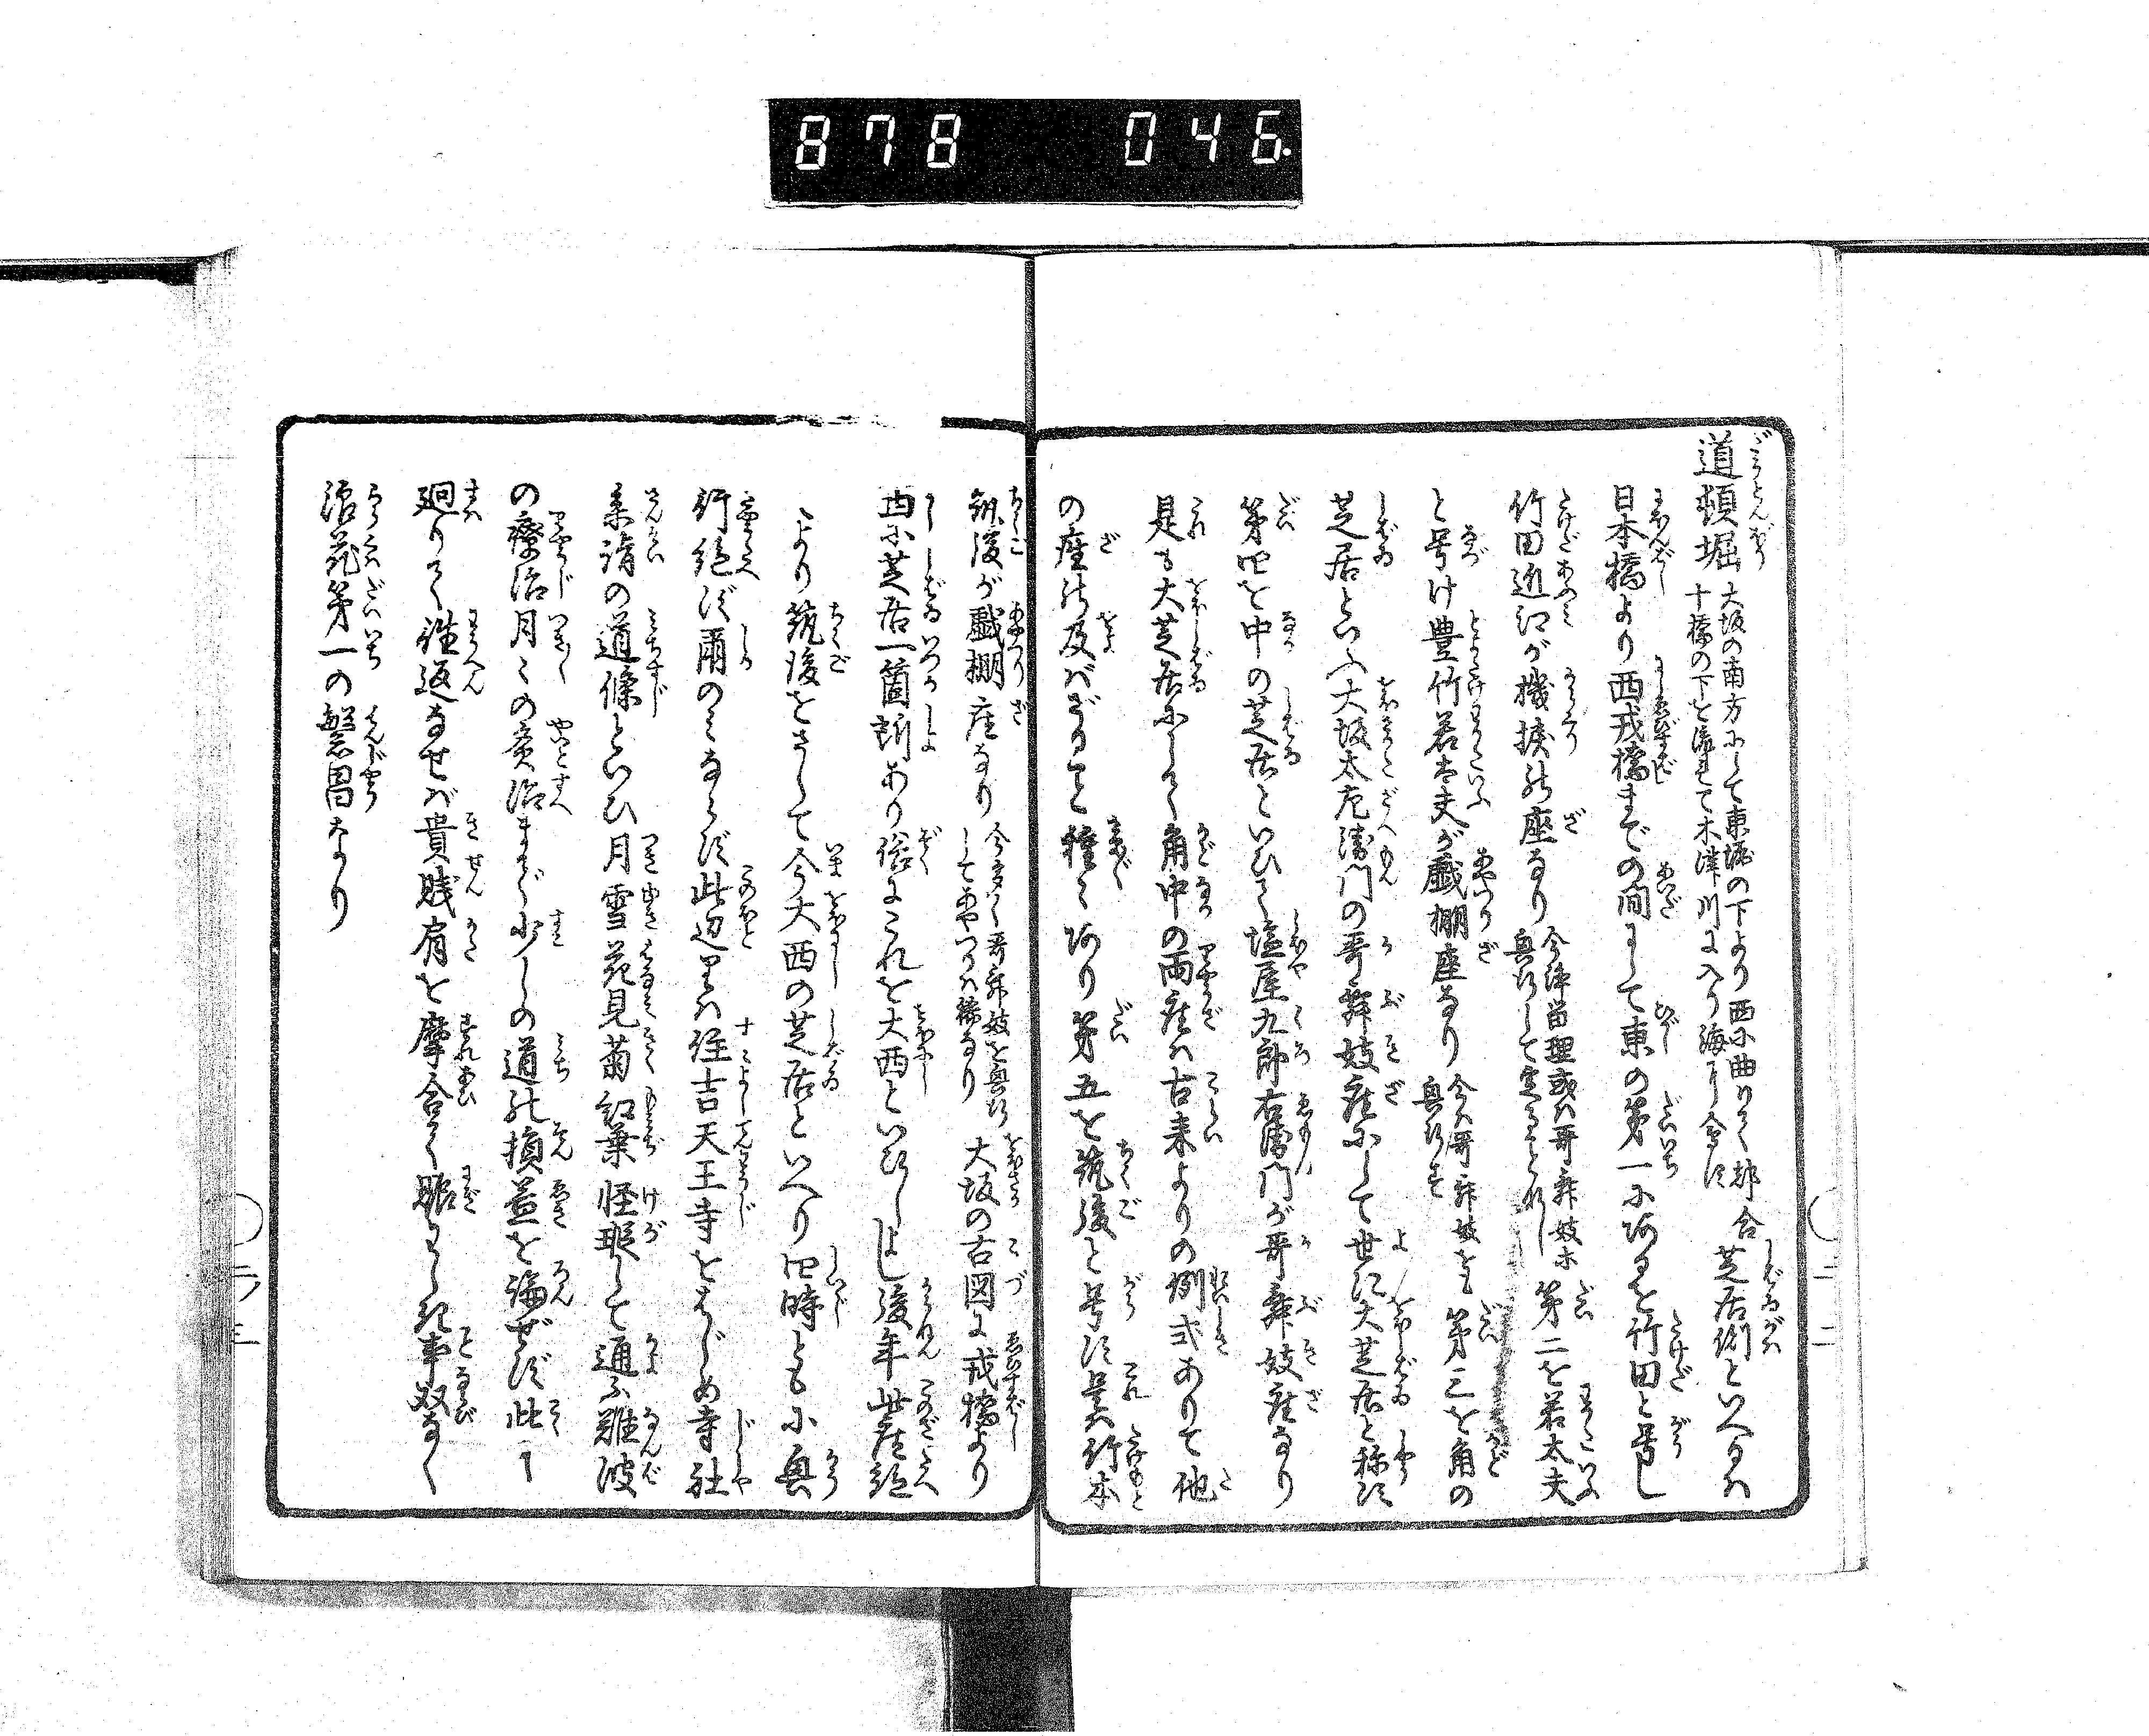 878 046.
道頓堀 大坂の南方にして東堀の下より西に曲りて都合
十橋の下を流れて木津川に入り海に会す 芝居側といへるハ
日本橋より西戎橋までの間にして東の第一にあるを竹田と号し
竹田近江が機捩の座なり 今浄留理或ハ哥舞妓ホ
興行して定ることなし 第二を若太夫
と号け豊竹若太夫が戯棚座なり 今ハ哥舞妓をも
興行す 第三を角の
芝居といふ大坂太左衛門の哥舞妓座にして世に大芝居と称す
第四を中の芝居といひて塩屋九郎右衛門が哥舞妓座なり
是も大芝居にして角中の両座ハ古来よりの例式ありて他
の座の及バざること種々あり第五を筑後と号す是ハ竹本
筑後が戯棚座なり 今多く哥舞妓を興行
してあやつりハ稀なり 大坂の古図に戎橋より
西に芝居一箇所あり俗にこれを大西といひしよし後年此座絶
より筑後をさして今大西の芝居といへり四時ともに興
行絶ず爾のミならず此辺りハ住吉天王寺をはじめ寺社
参詣の道條といひ月雪花見菊紅葉怪我して通ふ難波
の療治月々の灸治まで少しの道の損益を論ぜず此
廻りて往返なせバ貴賎肩を摩合て賑わしき事双なく
浪花第一の繁昌なり